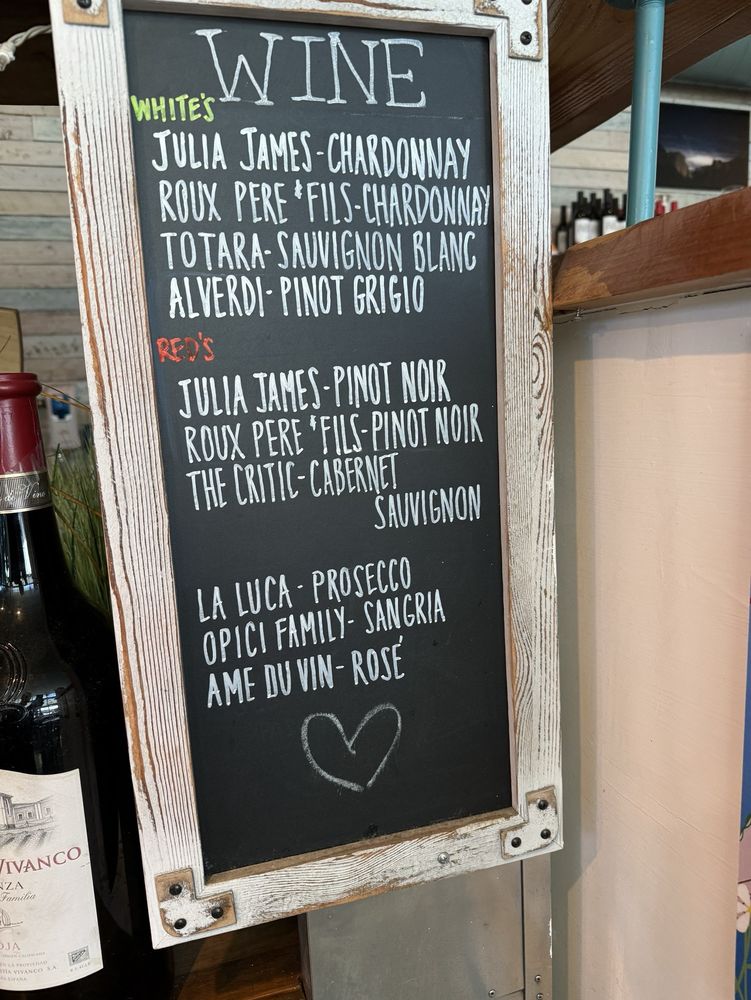 WINE
WHITE'S
JULIA JAMES-CHARDONNAY
ROUX PERE & FILS-CHARDONNAY
TOTARA-SAUVIGNON BLANC
ALVERDI-PINOT GRIGIO
RED'S
JULIA JAMES-PINOT NOIR
ROUX PERE & FILS-PINOT NOIR
THE CRITIC-CABERNET
SAUVIGNON
LA LUCA - PROSECCO
OPICI FAMILY- SANGRIA
AME DU VIN- ROSÉ
VIVANCO
NZA
Familia
OJA